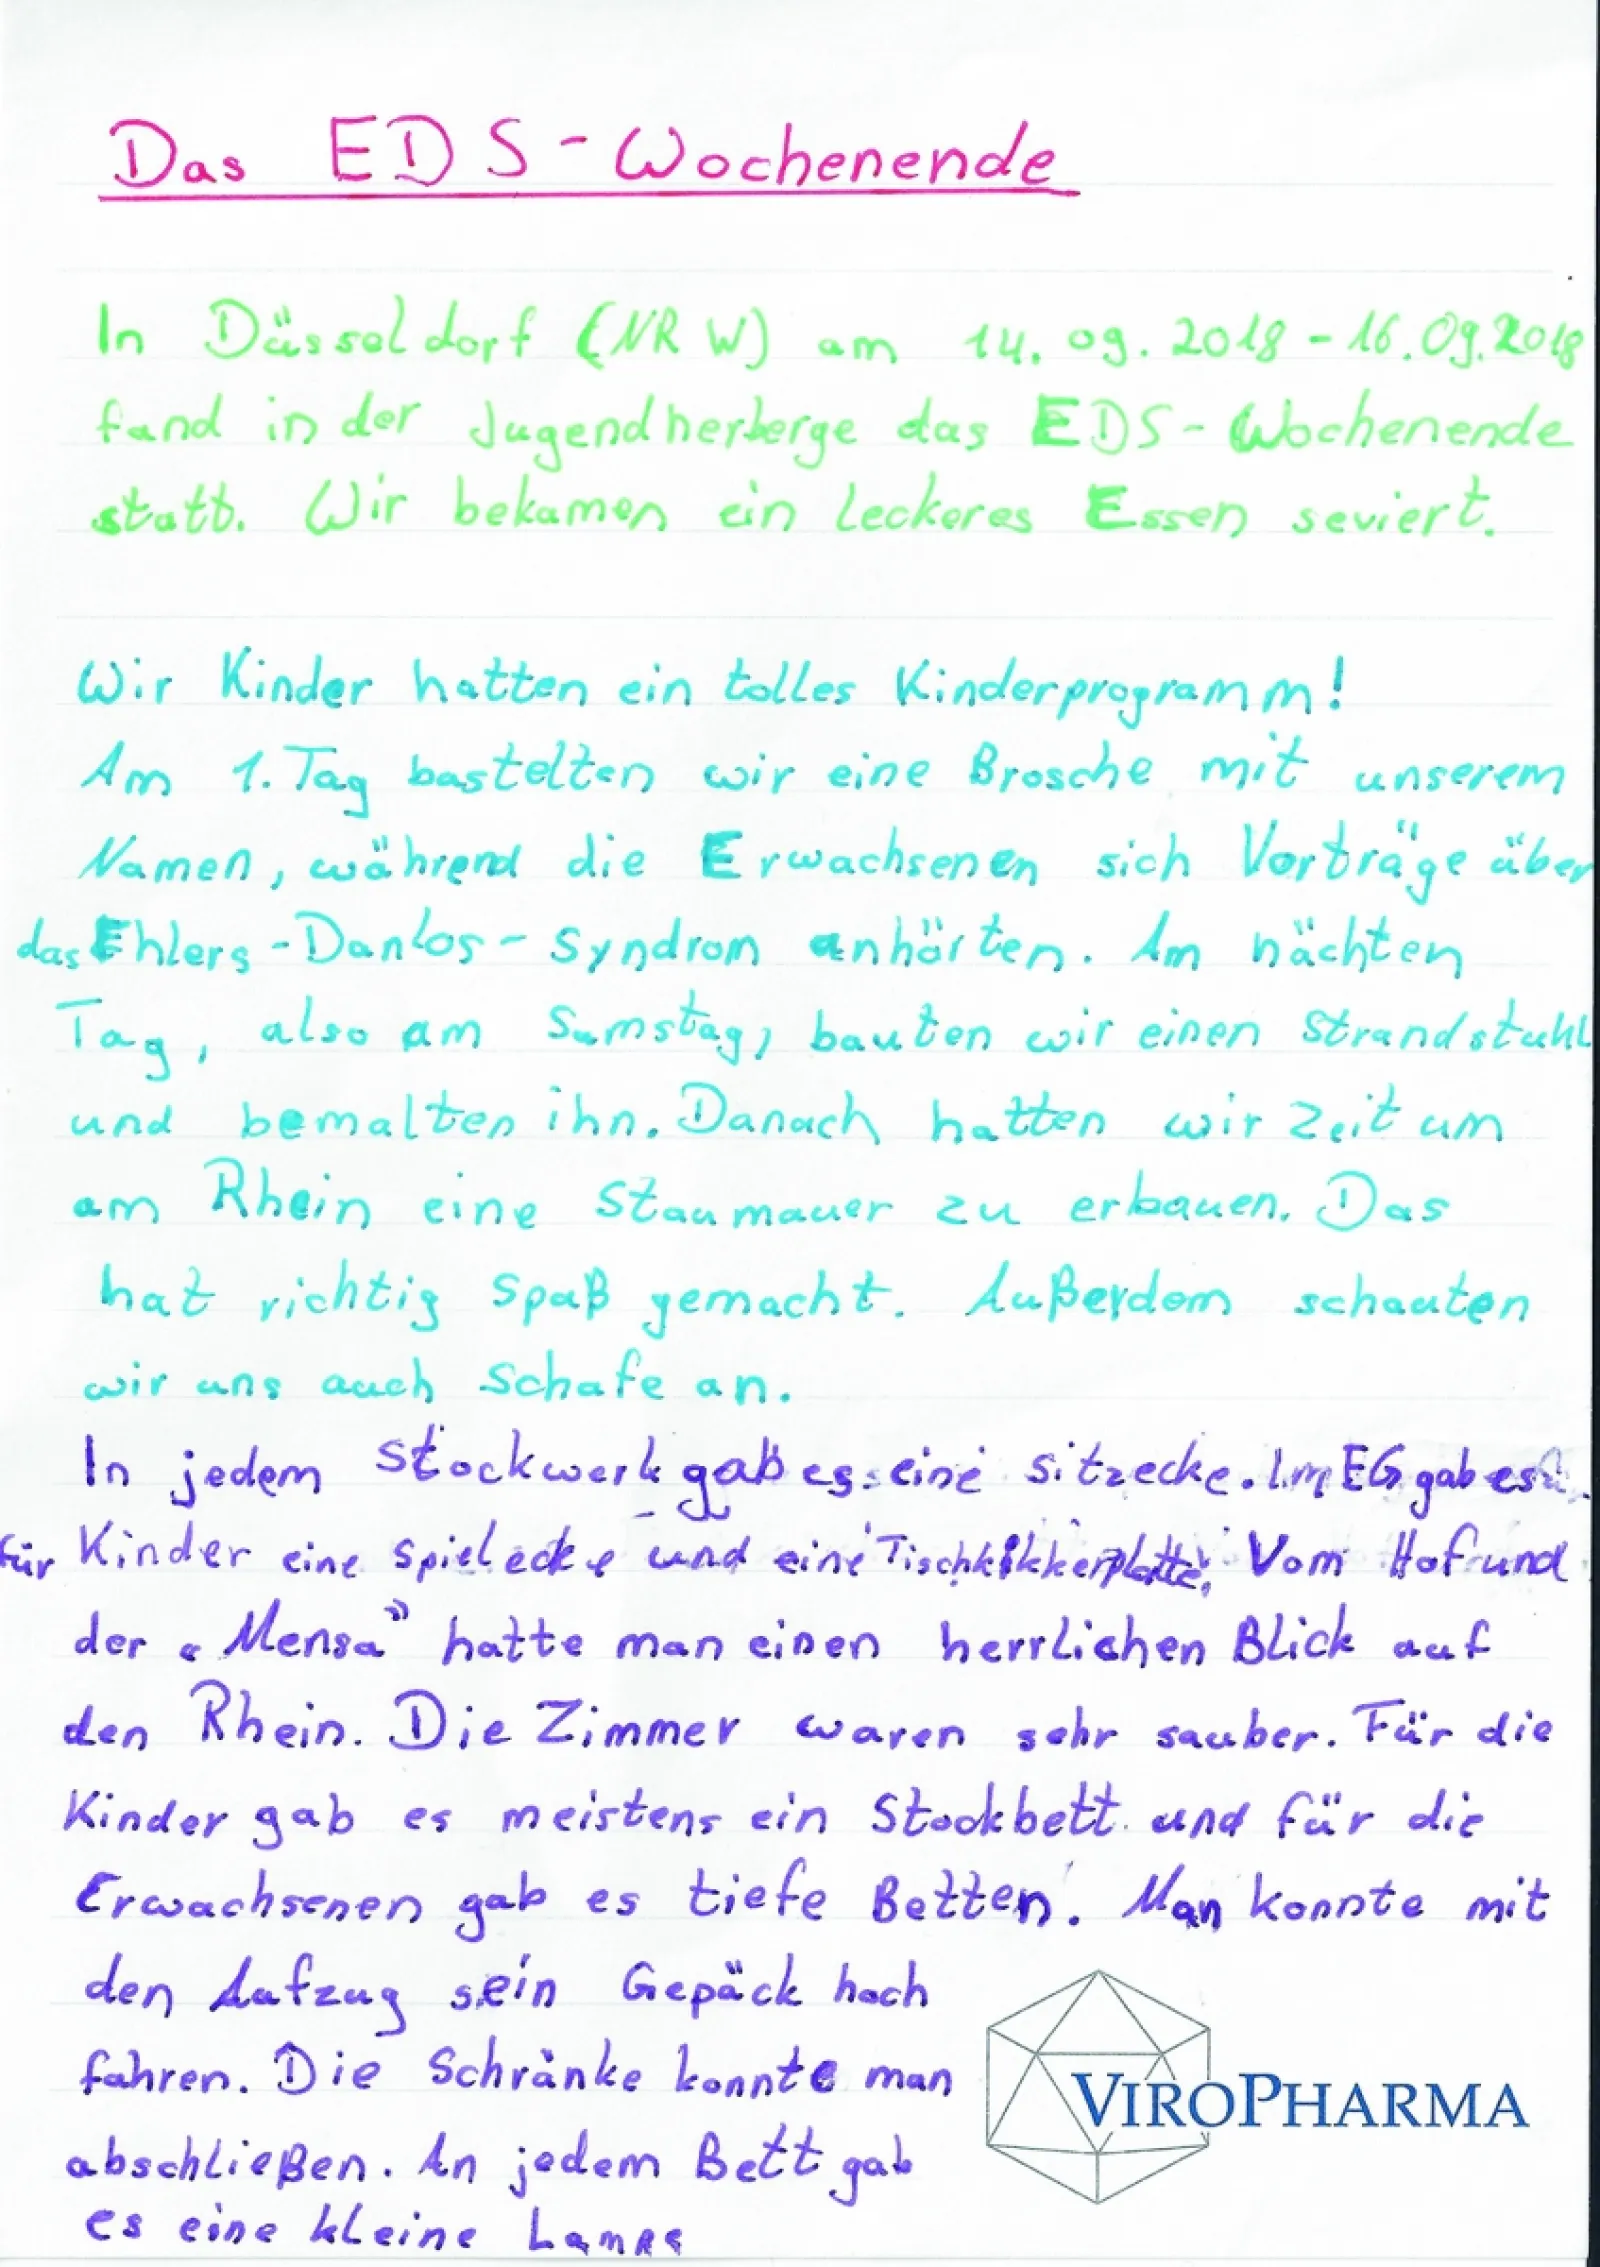 Das EDS-Wochenende
In Düsseldorf (NRW) am 14.09.2018-16.09.2018
fand in der Jugendherberge das EDS-Wochenende
statt. Wir bekamen ein leckeres Essen seviert.
Wir Kinder hatten ein tolles Kinderprogramm!
Am 1. Tag bastelten wir eine Brosche mit unserem
Namen, während die Erwachsenen sich Vorträge über
das Ehlers-Danlos-Syndrom anhörten. Am nächten
Tag, also am Samstag, bauten wir einen Strandstuhl
und bemalten ihn. Danach hatten wir Zeit um
am Rhein eine Staumauer zu erbauen. Das
hat richtig Spaß gemacht. Außerdem schauten
wir uns auch Schafe an.
In jedem Stockwerk gab es eine Sitzecke. Im EG gab es
für Kinder eine Spielecke und eine Tischkikkerplatte. Vom Hof und
der "Mensa" hatte man einen herrlichen Blick auf
den Rhein. Die Zimmer waren sehr sauber. Für die
Kinder gab es meistens ein Stockbett und für die
Erwachsenen gab es tiefe Betten. Man konnte mit
den Aufzug sein Gepäck hoch
fahren. Die Schränke konnte man
abschließen. An jedem Bett gab
es eine kleine Lampe
VIROPHARMA